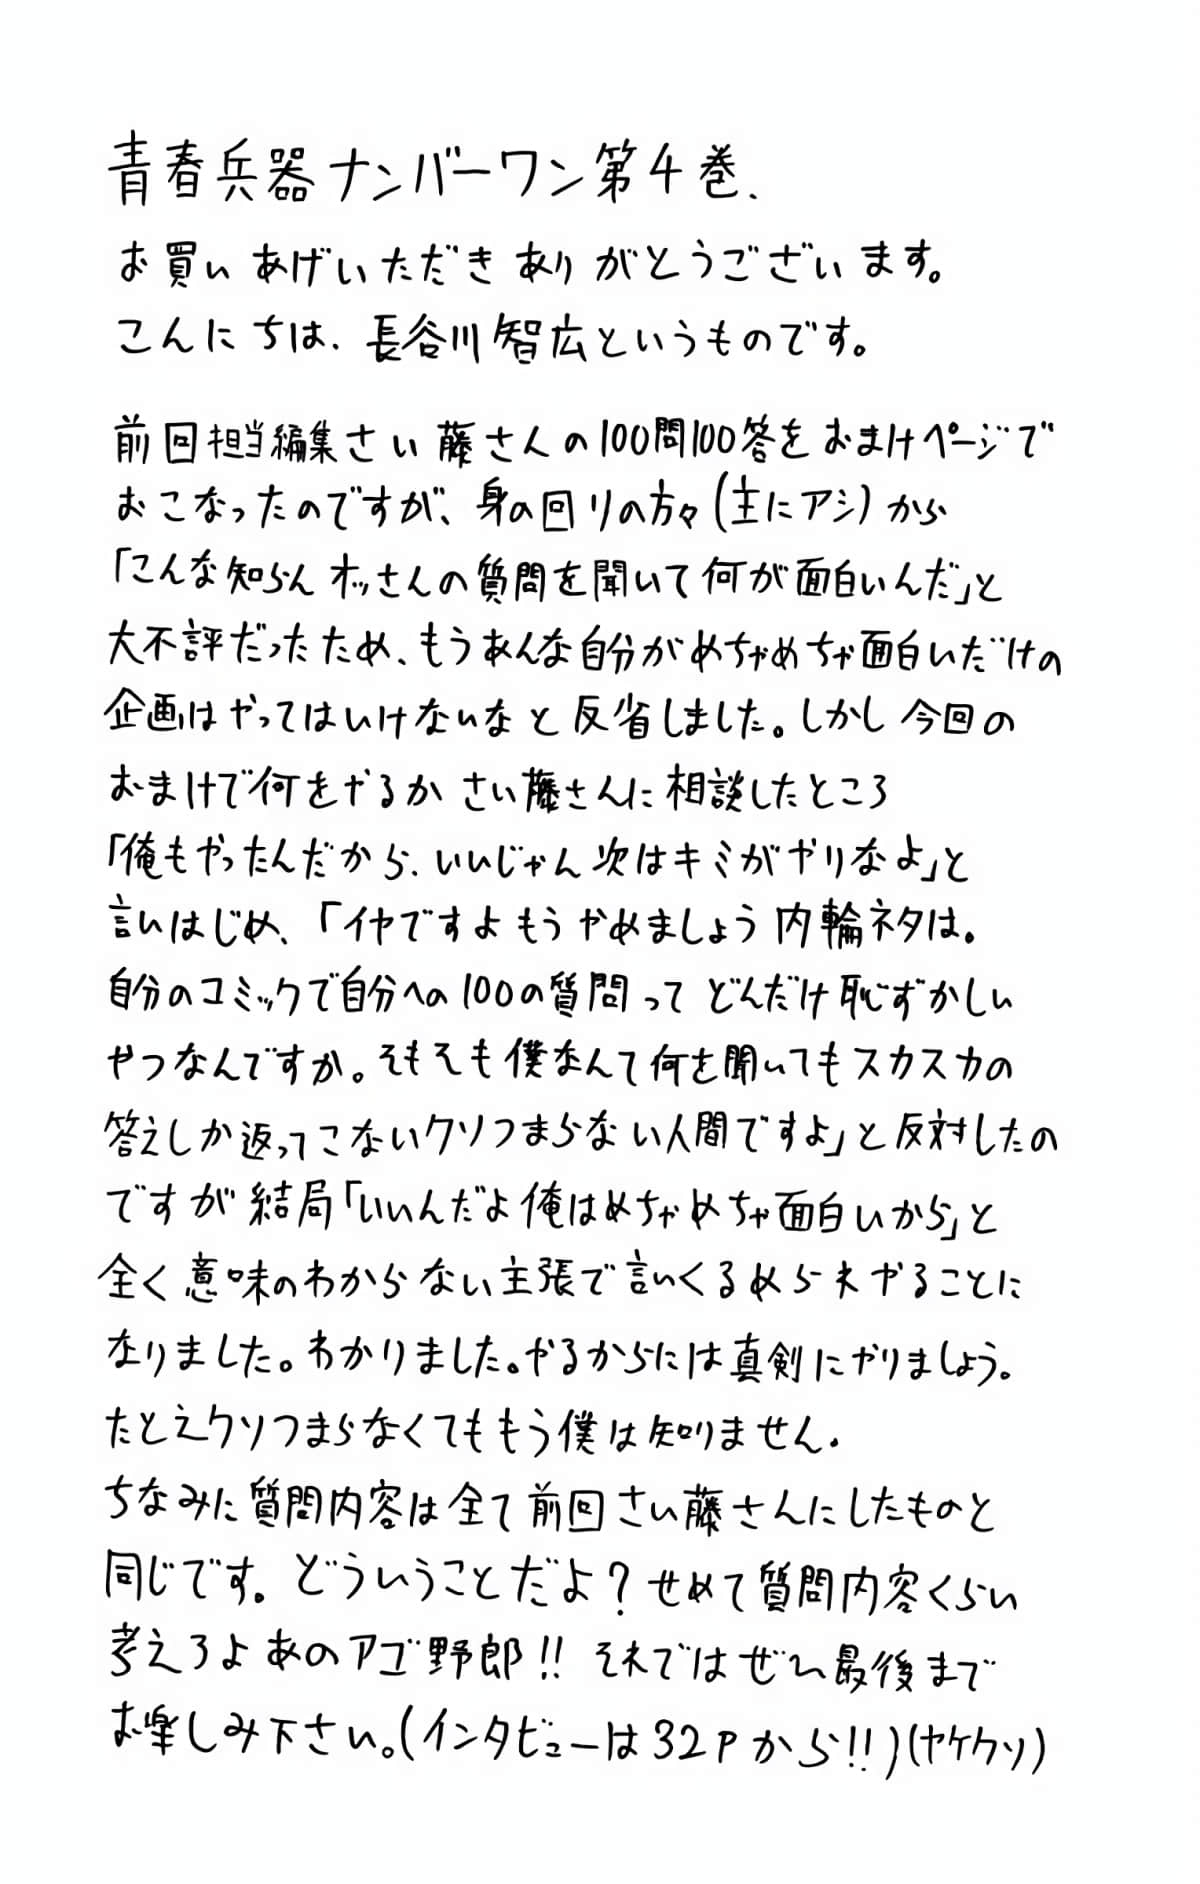 青春兵器ナンバーワン第4巻、
お買いあげいただきありがとうございます。
こんにちは、長谷川智広というものです。
前回担当編集さい藤さんの100問100答をおまけページで
おこなったのですが、身の回りの方々(主にアシ)から
「こんな知らんオッさんの質問を聞いて何が面白いんだ」と
大不評だったため、もうあんな自分がめちゃめちゃ面白いだけの
企画はやってはいけないなと反省しました。しかし今回の
おまけで何をやるかさい藤さんに相談したところ
「俺もやったんだから、いいじゃん次はキミがやりなよ」と
言いはじめ、「イヤですよもうやめましょう内輪ネタは。
自分のコミックで自分への100の質問ってどんだけ恥ずかしい
やつなんですか。そもそも僕なんて何を聞いてもスカスカの
答えしか返ってこないクソつまらない人間ですよ」と反対したの
ですが結局「いいんだよ俺はめちゃめちゃ面白いから」と
全く意味のわからない主張で言いくるめられやることに
なりました。わかりました。やるからには真剣にやりましょう。
たとえクソつまらなくてももう僕は知りません。
ちなみに質問内容は全て前回さい藤さんにしたものと
同じです。どういうことだよ?せめて質問内容くらい
考えろよあのアゴ野郎!!それではぜひ最後まで
お楽しみ下さい。(インタビューは32Pから!!)(ヤケクソ)